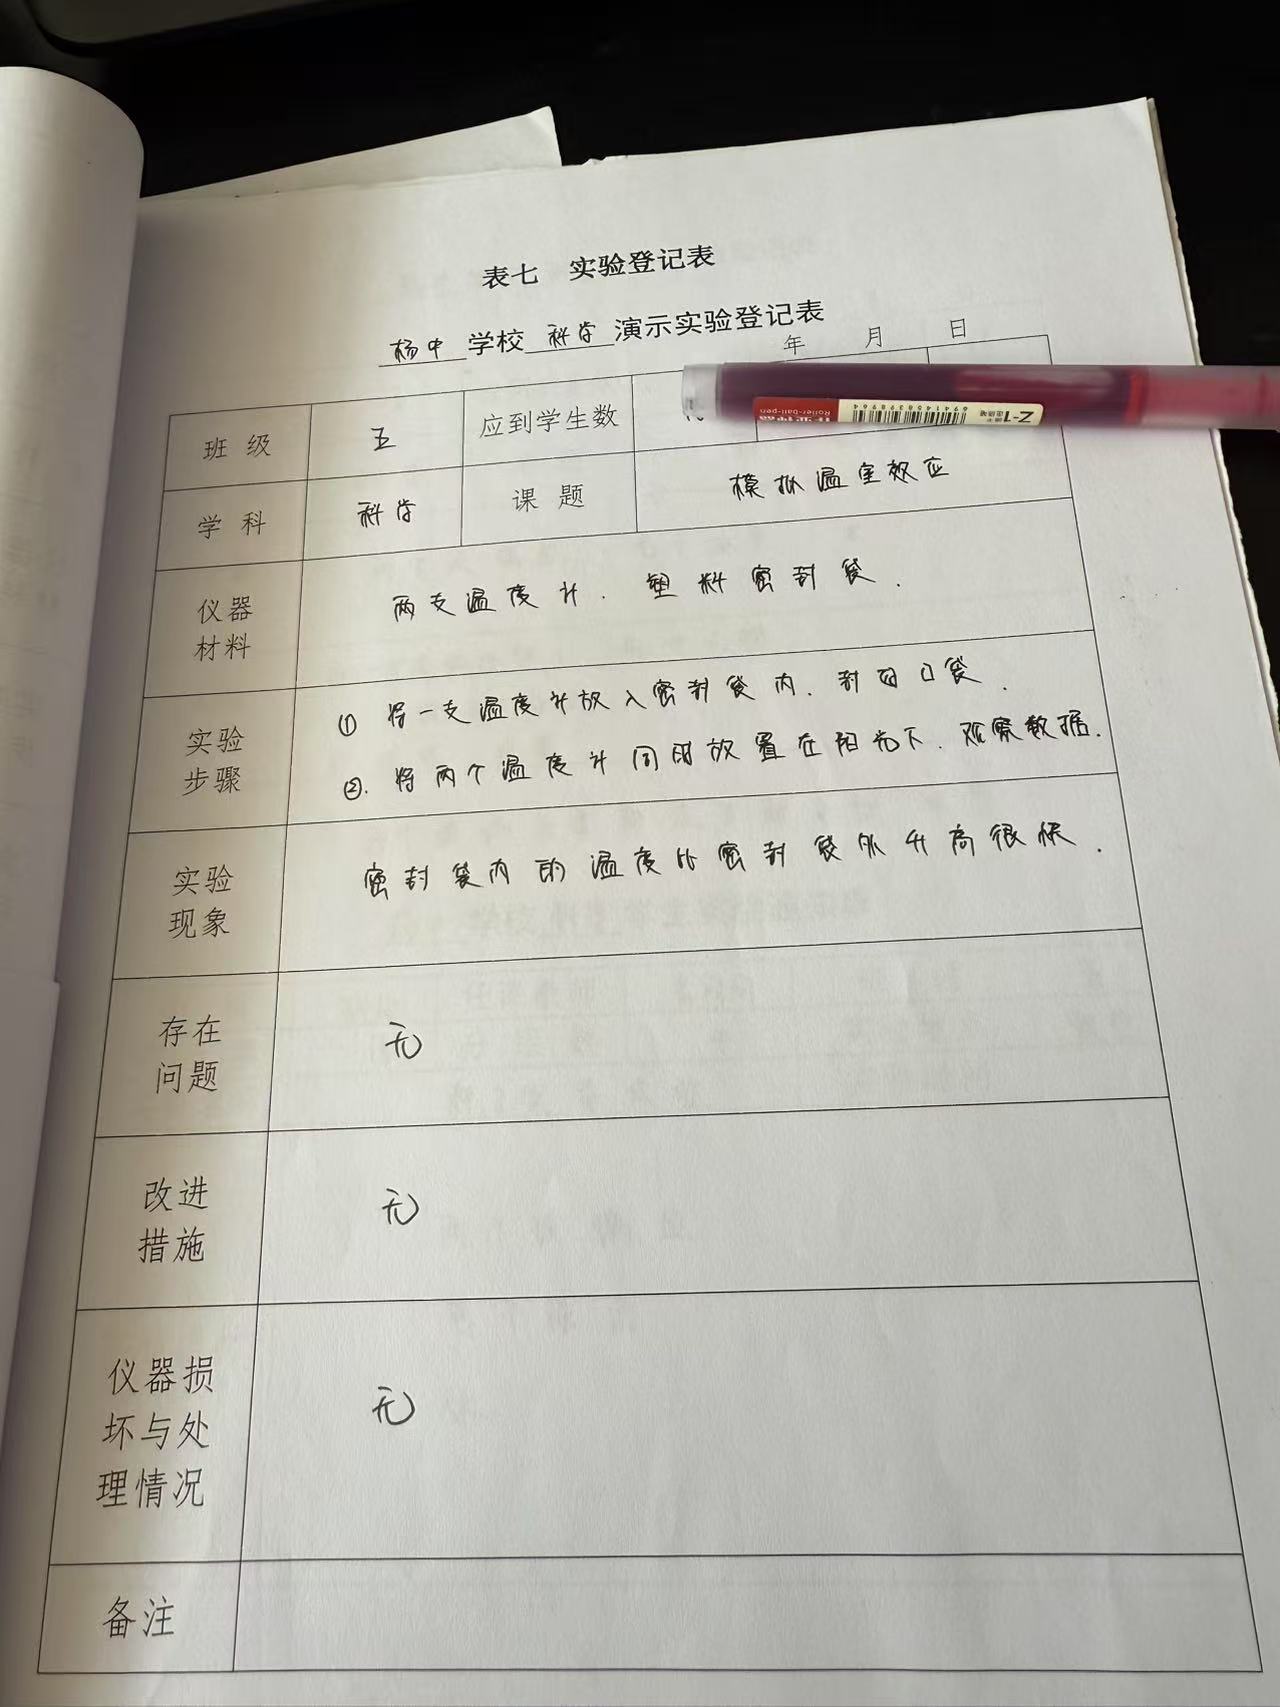 表七 实验登记表
杨中学校科学演示实验登记表
年 月 日
班级 五 应到学生数
学科 科学 课题 模拟温室效应
仪器材料 两支温度计.塑料密封袋.
实验步骤 ① 将一支温度计放入密封袋内.封口袋.
②.将两个温度计同时放置在阳光下.观察数据.
实验现象 密封袋内的温度比密封袋外升高很快.
存在问题 无
改进措施 无
仪器损坏与处理情况 无
备注
Roller-ball-pen
6941458398964
Z-1